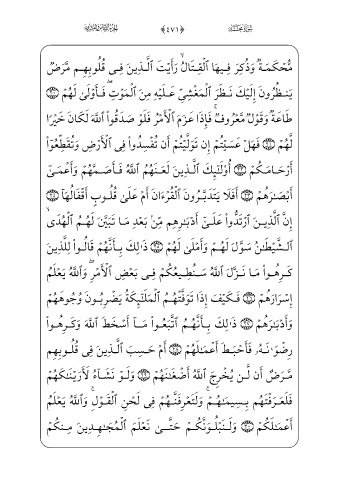 سورة محمد ﴿٤٧١﴾ الجزء السادس والعشرون
مُّحْكَمَةٌ وَذُكِرَ فِيهَا ٱلْقِتَالُ ۙ رَأَيْتَ ٱلَّذِينَ فِى قُلُوبِهِم مَّرَضٌ
يَنظُرُونَ إِلَيْكَ نَظَرَ ٱلْمَغْشِىِّ عَلَيْهِ مِنَ ٱلْمَوْتِ ۖ فَأَوْلَىٰ لَهُمْ ۝٢٠
طَاعَةٌ وَقَوْلٌ مَّعْرُوفٌ ۚ فَإِذَا عَزَمَ ٱلْأَمْرُ فَلَوْ صَدَقُوا۟ ٱللَّهَ لَكَانَ خَيْرًا
لَّهُمْ ۝٢١ فَهَلْ عَسَيْتُمْ إِن تَوَلَّيْتُمْ أَن تُفْسِدُوا۟ فِى ٱلْأَرْضِ وَتُقَطِّعُوٓا۟
أَرْحَامَكُمْ ۝٢٢ أُو۟لَـٰٓئِكَ ٱلَّذِينَ لَعَنَهُمُ ٱللَّهُ فَأَصَمَّهُمْ وَأَعْمَىٰٓ
أَبْصَـٰرَهُمْ ۝٢٣ أَفَلَا يَتَدَبَّرُونَ ٱلْقُرْءَانَ أَمْ عَلَىٰ قُلُوبٍ أَقْفَالُهَآ ۝٢٤
إِنَّ ٱلَّذِينَ ٱرْتَدُّوا۟ عَلَىٰٓ أَدْبَـٰرِهِم مِّنۢ بَعْدِ مَا تَبَيَّنَ لَهُمُ ٱلْهُدَى ۙ
ٱلشَّيْطَـٰنُ سَوَّلَ لَهُمْ وَأَمْلَىٰ لَهُمْ ۝٢٥ ذَٰلِكَ بِأَنَّهُمْ قَالُوا۟ لِلَّذِينَ
كَرِهُوا۟ مَا نَزَّلَ ٱللَّهُ سَنُطِيعُكُمْ فِى بَعْضِ ٱلْأَمْرِ ۖ وَٱللَّهُ يَعْلَمُ
إِسْرَارَهُمْ ۝٢٦ فَكَيْفَ إِذَا تَوَفَّتْهُمُ ٱلْمَلَـٰٓئِكَةُ يَضْرِبُونَ وُجُوهَهُمْ
وَأَدْبَـٰرَهُمْ ۝٢٧ ذَٰلِكَ بِأَنَّهُمُ ٱتَّبَعُوا۟ مَآ أَسْخَطَ ٱللَّهَ وَكَرِهُوا۟
رِضْوَٰنَهُۥ فَأَحْبَطَ أَعْمَـٰلَهُمْ ۝٢٨ أَمْ حَسِبَ ٱلَّذِينَ فِى قُلُوبِهِم
مَّرَضٌ أَن لَّن يُخْرِجَ ٱللَّهُ أَضْغَـٰنَهُمْ ۝٢٩ وَلَوْ نَشَآءُ لَأَرَيْنَـٰكَهُمْ
فَلَعَرَفْتَهُم بِسِيمَـٰهُمْ ۚ وَلَتَعْرِفَنَّهُمْ فِى لَحْنِ ٱلْقَوْلِ ۚ وَٱللَّهُ يَعْلَمُ
أَعْمَـٰلَكُمْ ۝٣٠ وَلَنَبْلُوَنَّكُمْ حَتَّىٰ نَعْلَمَ ٱلْمُجَـٰهِدِينَ مِنكُمْ